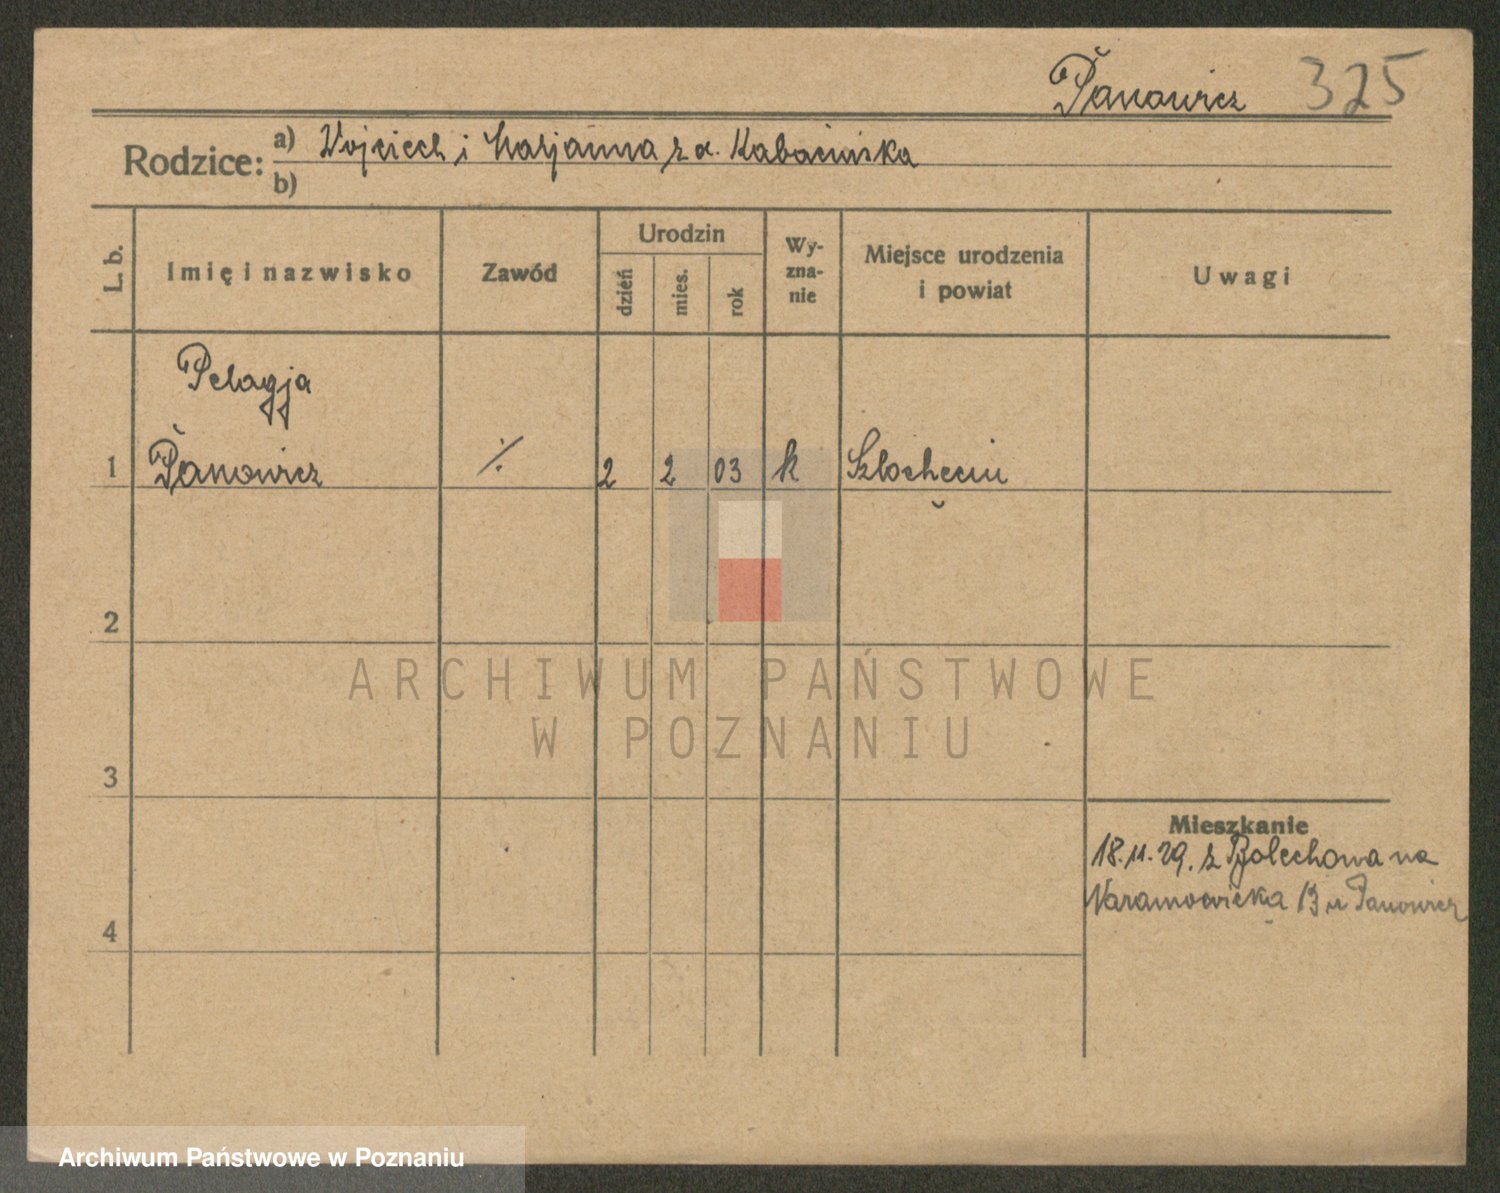 Panowicz 325
Rodzice: a) Wojciech i Marjanna z d. Kabacińska
b)
L. b. Imię i nazwisko Zawód Urodzin dzień mies. rok Wyznanie Miejsce urodzenia i powiat Uwagi
Pelagja
1 Panowicz ·/. 2 2 03 k
2
3
4
Mieszkanie
18.11.29. z Bolechowa na
13 u Panowicz
ARCHIWUM PAŃSTWOWE
W POZNANIU
Archiwum Państwowe w Poznaniu